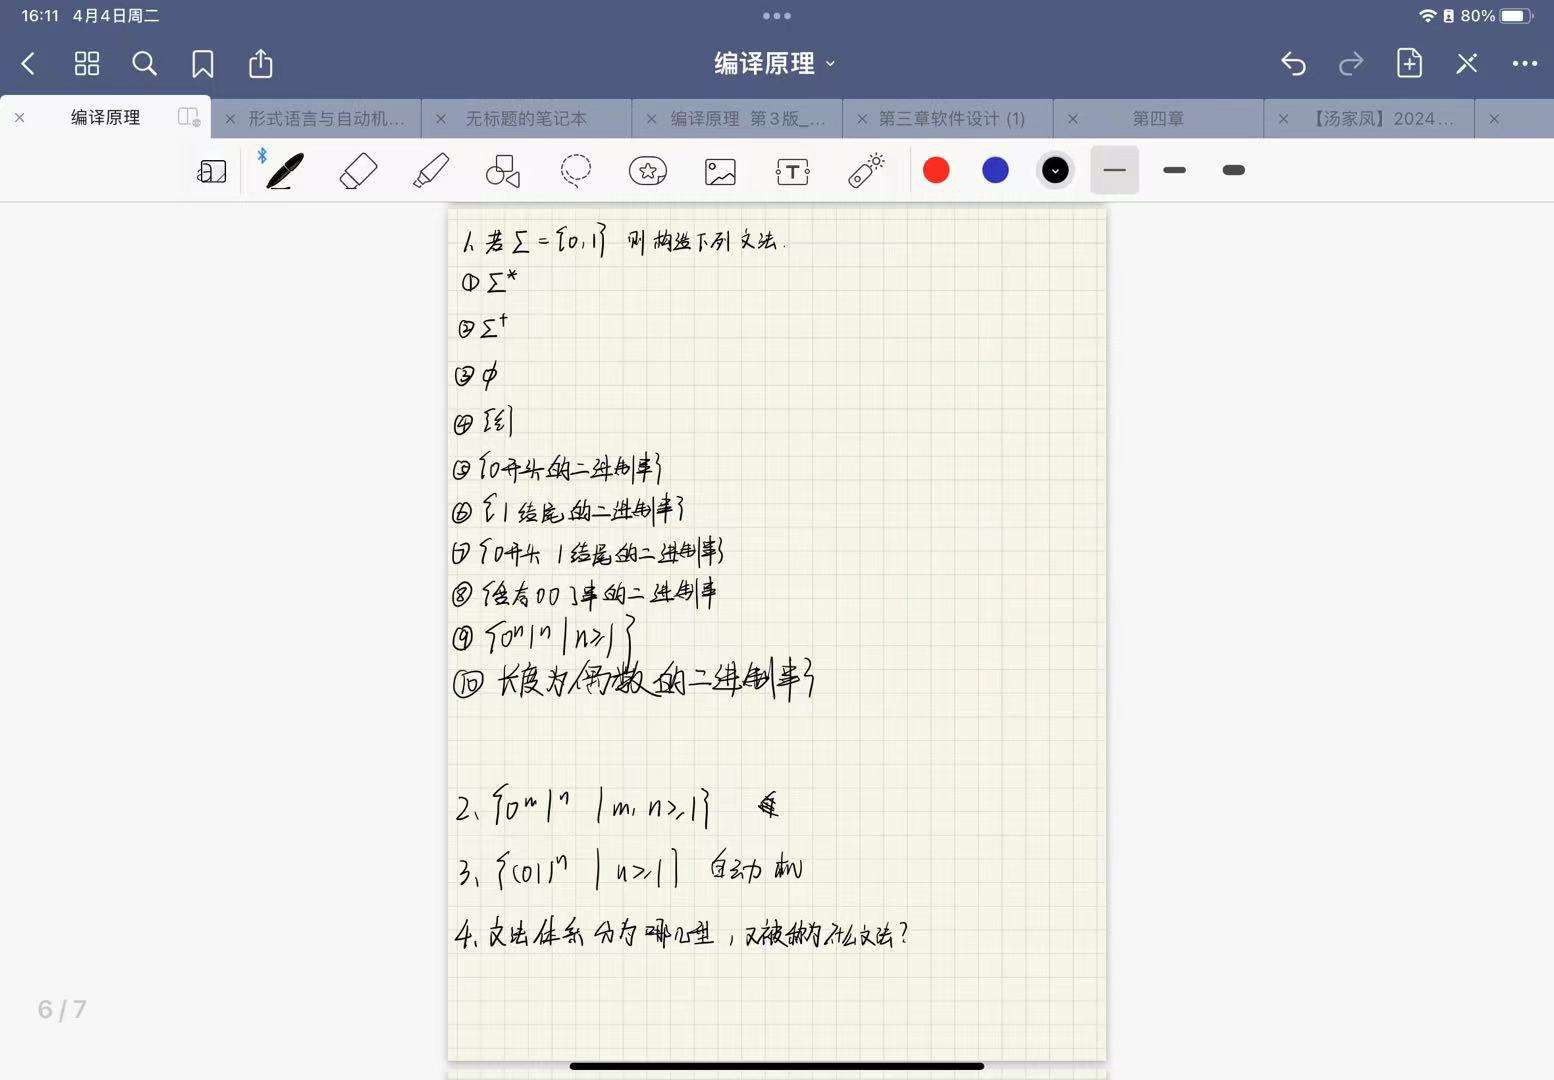 16:11 4月4日周二
80%
编译原理
编译原理
形式语言与自动机...
无标题的笔记本
编译原理 第3版_...
第三章软件设计 (1)
第四章
【汤家凤】2024...
1、若Σ={0,1} 则构造下列文法.
① Σ*
② Σ+
③ φ
④ {ε}
⑤ {0开头的二进制串}
⑥ {1结尾的二进制串}
⑦ {0开头 1结尾的二进制串}
⑧ {含有00子串的二进制串
⑨ {0ⁿ1ⁿ | n≥1}
⑩ 长度为偶数的二进制串}
2、{0ᵐ1ⁿ | m, n≥1}
3、{(01)ⁿ | n≥1} 自动机
4、文法体系分为哪几型，又被称为什么文法？
6 / 7